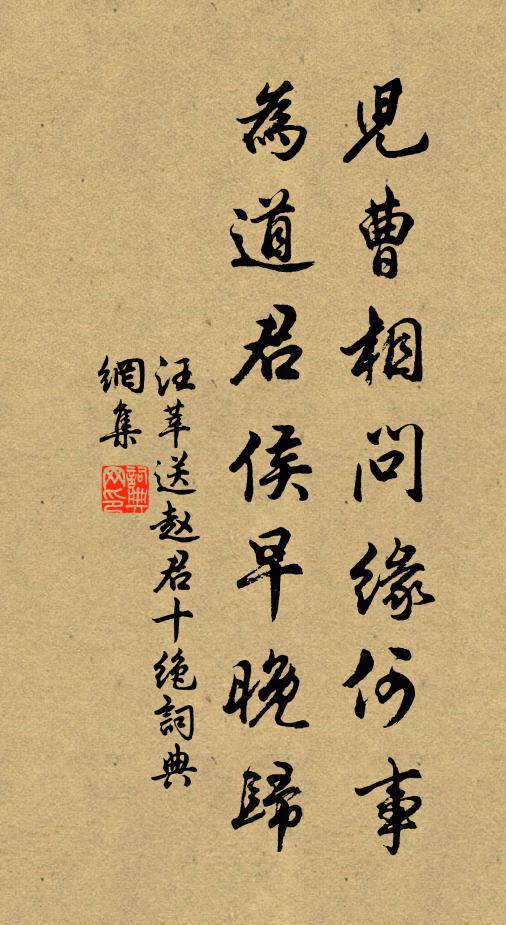 兒曹相問緣何事
為道君侯早晚歸
汪莘送赵君十绝詞典
網集
詞典网印